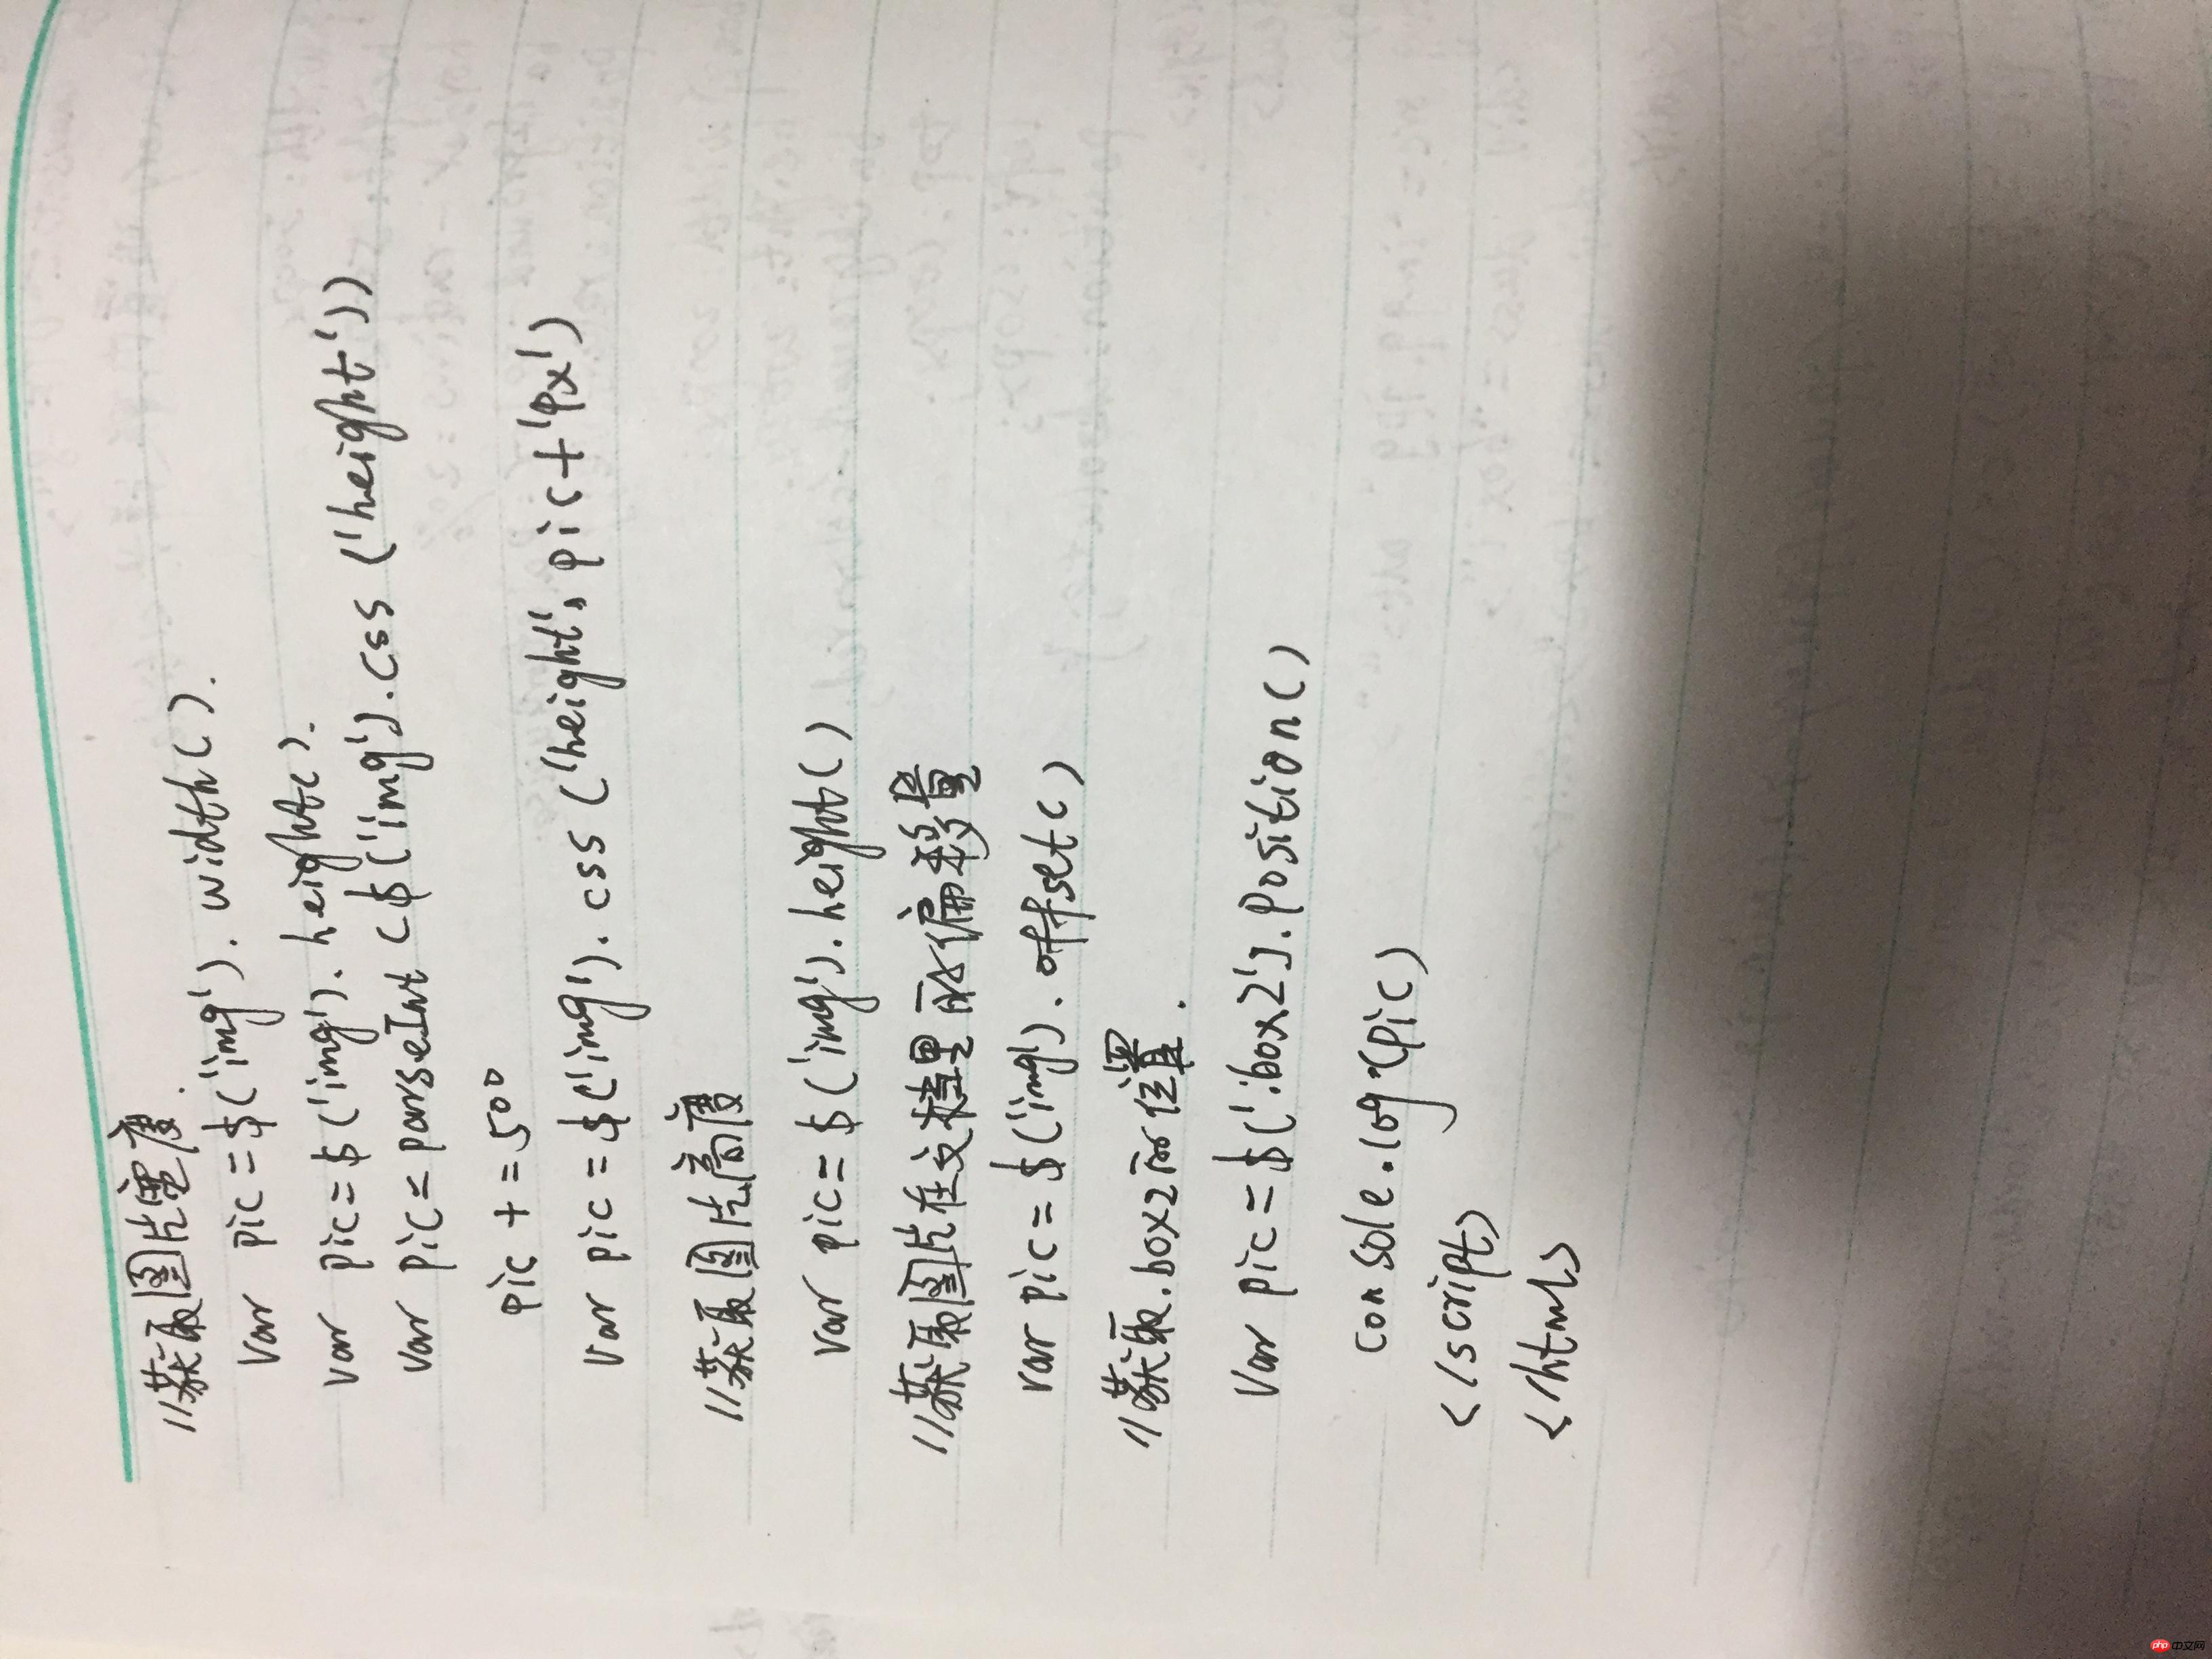 //获取图片宽度.
var pic=$('img').width().
var pic=$('img').height().
var pic=parseInt($('img').css('height'))
pic+=500
var pic=$('img').css('height',pic+'px')
//获取图片高度
var pic=$('img').height()
//获取图片在文档里的偏移量
var pic=$('img').offset()
//获取.box2的位置.
var pic=$('.box2').position()
console.log(pic)
</script>
</html>
php 中文网